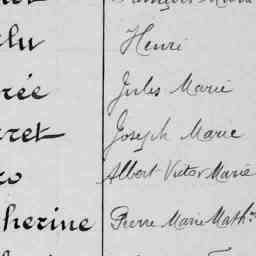 lu Henri
rée Jules Marie
rret Joseph Marie
ro Albert Victor Marie
therine Pierre Marie Math.